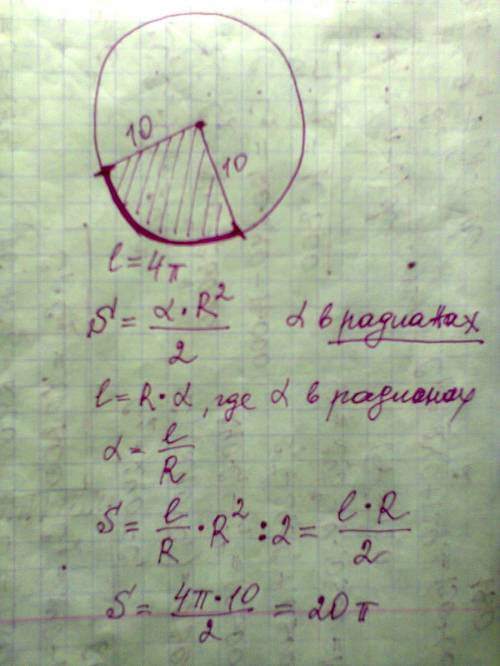 10
10
l = 4π
S = α·R² / 2    α в радианах
l = R·α, где α в радианах
α = l / R
S = l / R · R² : 2 = l·R / 2
S = 4π·10 / 2 = 20π